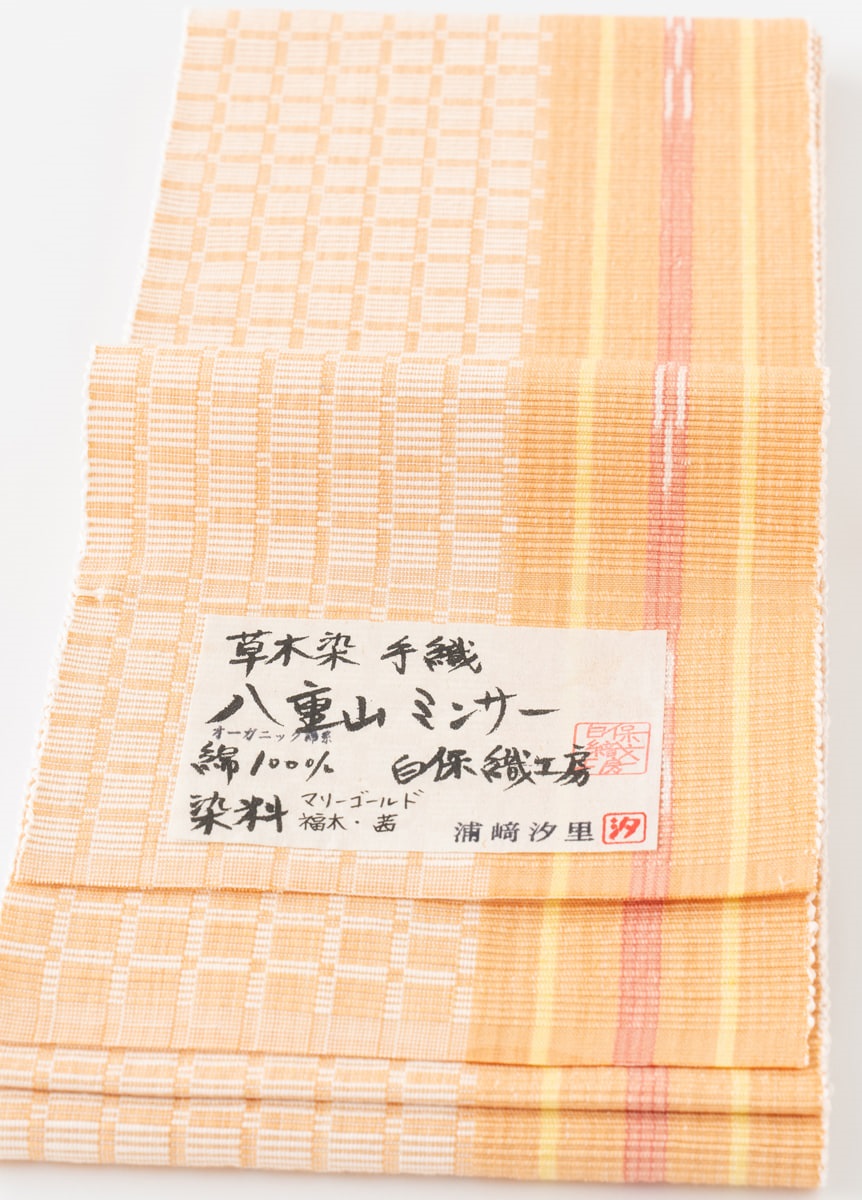 草木染 手織
八重山 ミンサー
オーガニック綿糸
綿100% 白保織工房
染料 マリーゴールド
福木・茜
浦﨑汐里 汐